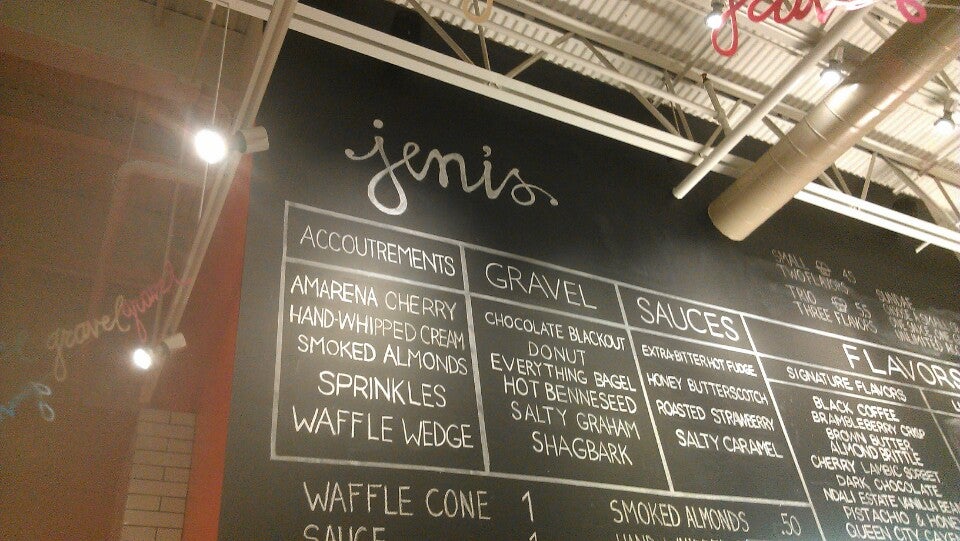 jeni's
SMALL 4.5
TWO FLAVORS
TRIO 5.5
THREE FLAVORS
SUNDAE
ACCOUTREMENTS
AMARENA CHERRY
HAND-WHIPPED CREAM
SMOKED ALMONDS
SPRINKLES
WAFFLE WEDGE
GRAVEL
CHOCOLATE BLACKOUT
DONUT
EVERYTHING BAGEL
HOT BENNESEED
SALTY GRAHAM
SHAGBARK
SAUCES
EXTRA-BITTER HOT FUDGE
HONEY BUTTERSCOTCH
ROASTED STRAWBERRY
SALTY CARAMEL
FLAVORS
SIGNATURE FLAVORS
BLACK COFFEE
BRAMBLEBERRY CRISP
BROWN BUTTER
ALMOND BRITTLE
CHERRY LAMBIC SORBET
DARK CHOCOLATE
NDALI ESTATE VANILLA BEA
PISTACHIO & HONE
QUEEN CITY CAYE
WAFFLE CONE 1
SAUCE 1
SMOKED ALMONDS .50
gravel